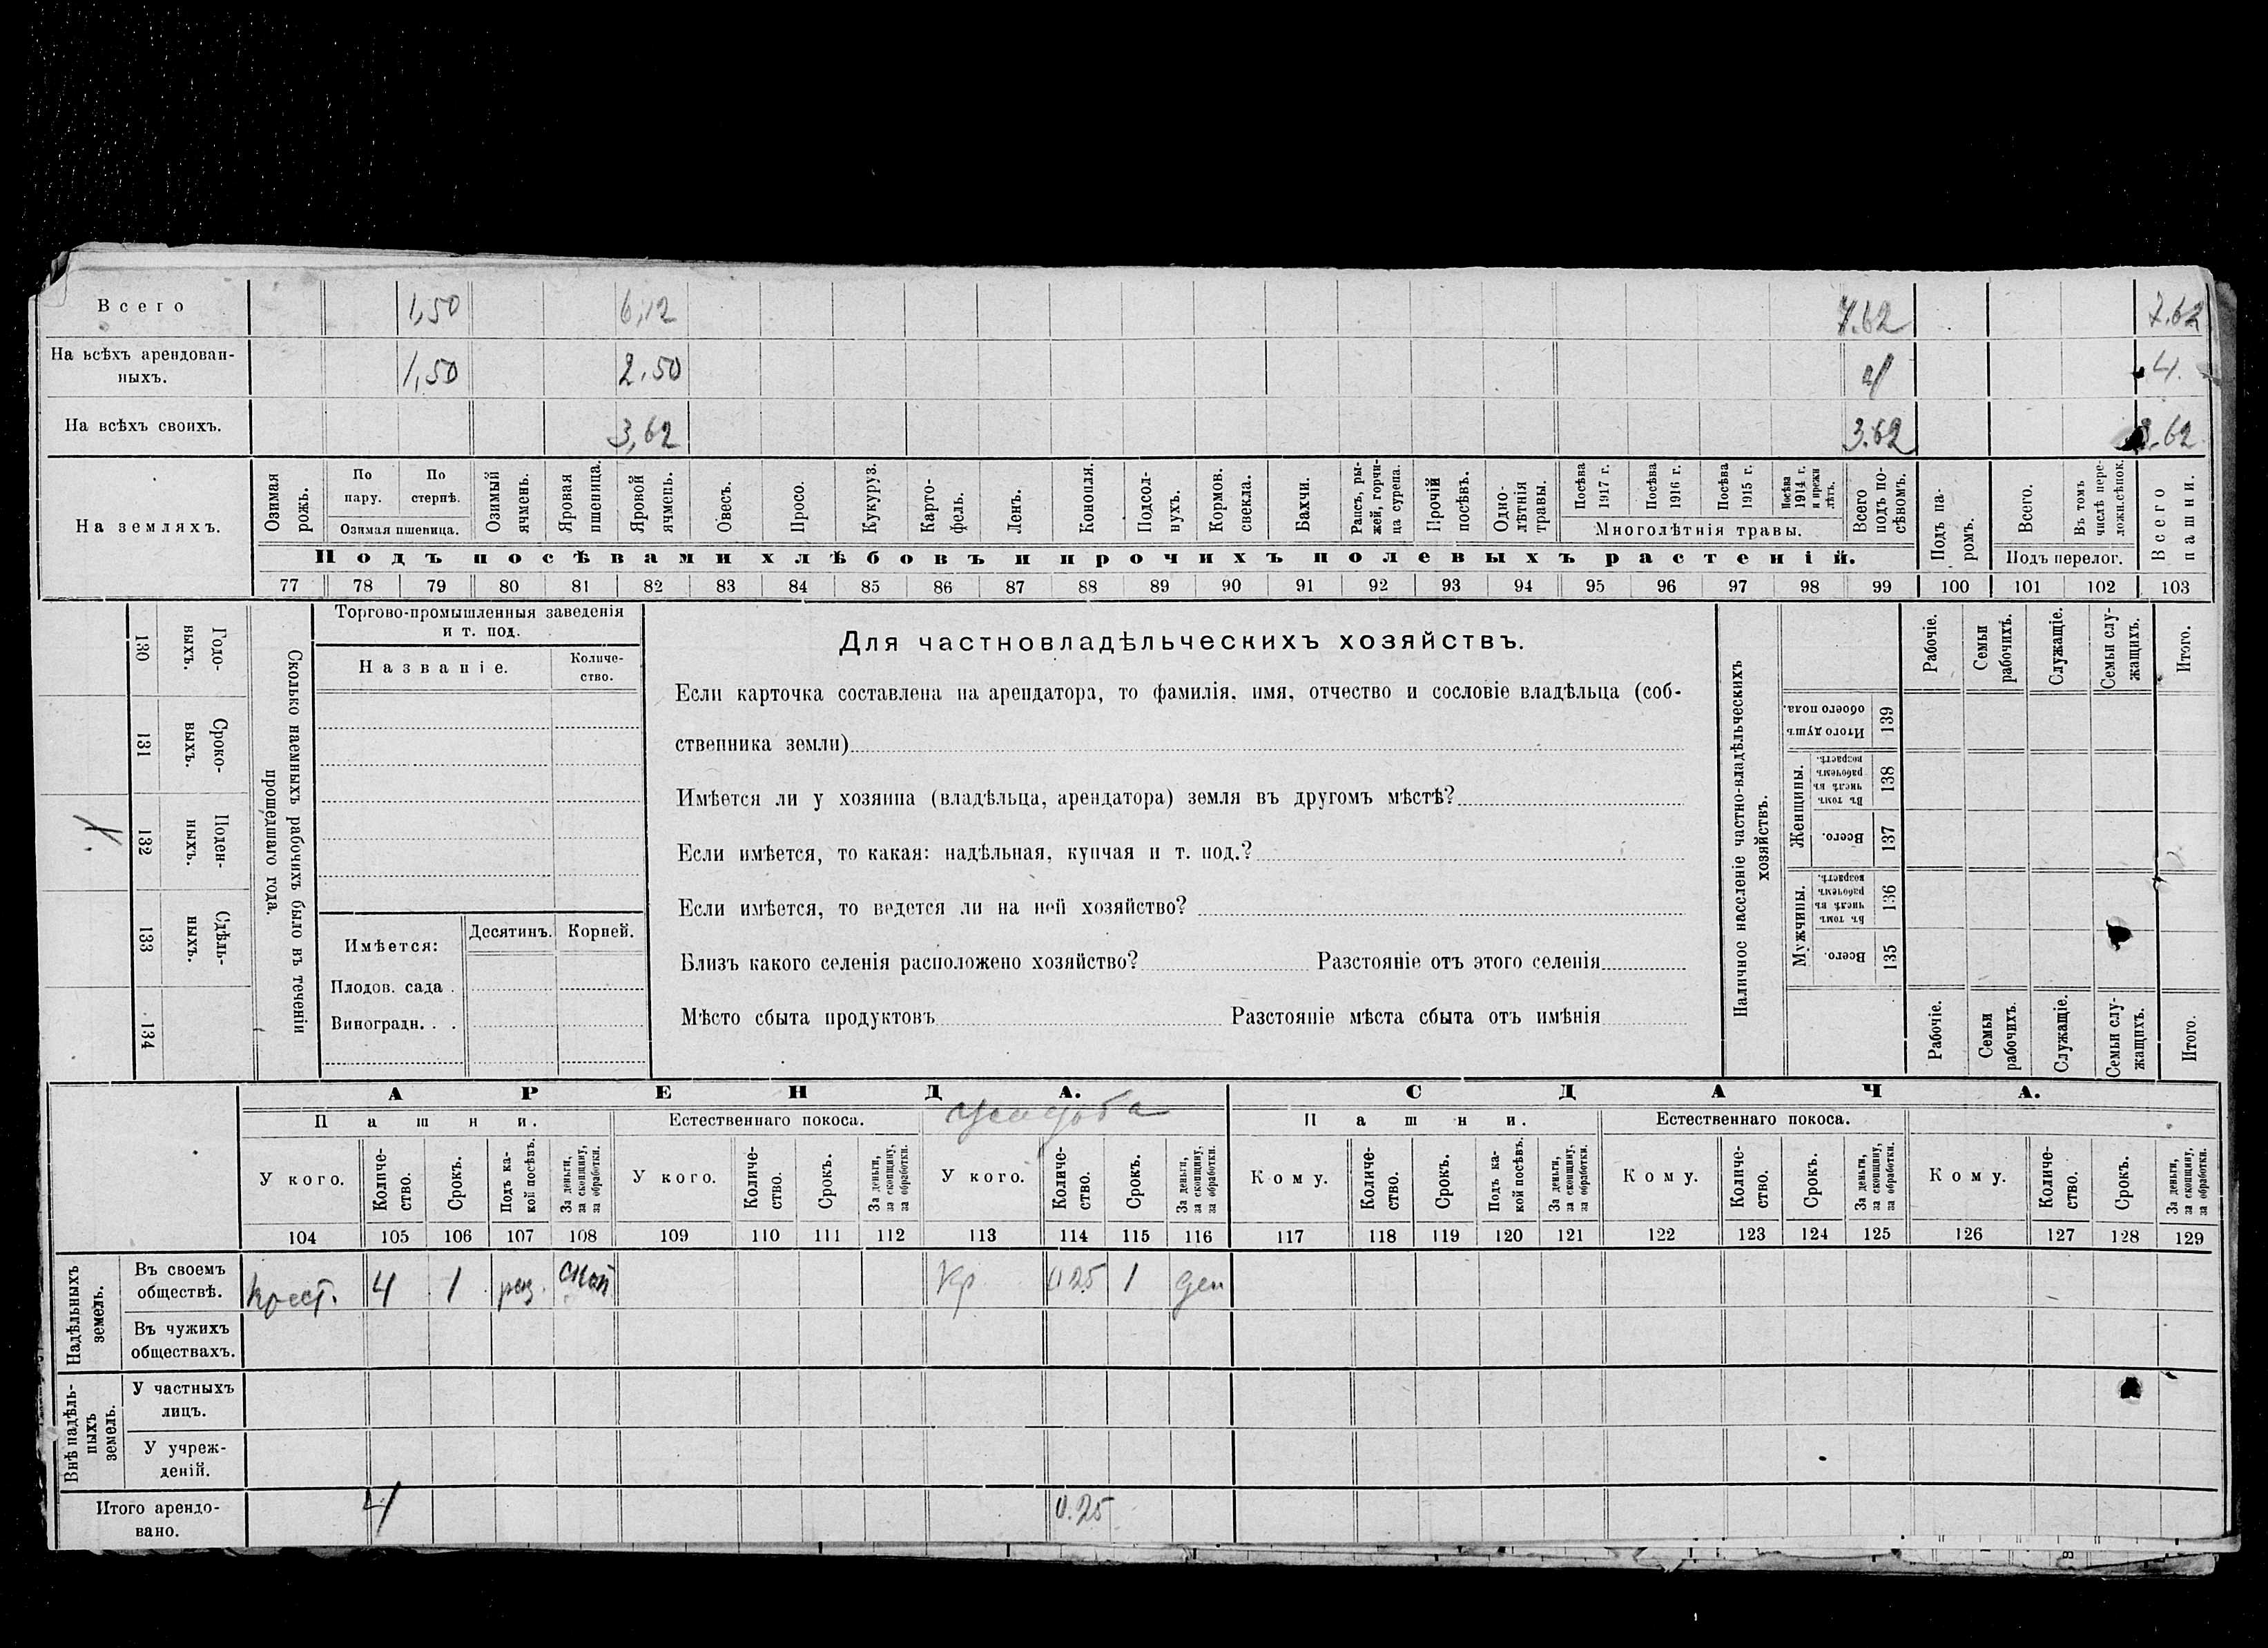 Всего 1,50 6,12 7.62 7.62
На всѣхъ арендован-
ныхъ. 1,50 2.50 4 4.
На всѣхъ своихъ. 3,62 3.62 3.62
На земляхъ.
Озимая рожь.
По пару.
По стернѣ.
Озимая пшеница.
Озимый ячмень.
Яровая пшеница.
Яровой ячмень.
Овесъ.
Просо.
Кукуруз.
Карто-
фель.
Ленъ.
Конопля.
Подсол-
нухъ.
Кормов.
свекла.
Бахчи.
Рапсъ, ры-
жей, горчи-
ца сурепа.
Прочій
посѣвъ.
Одно-
лѣтнія
травы.
Посѣва
1917 г.
Посѣва
1916 г.
Посѣва
1915 г.
Посѣва
1914 г.
и прежн
лѣтъ.
Многолѣтнія травы.
Всего
подъ по-
сѣвомъ.
Подъ посѣвами хлѣбовъ и прочихъ полевыхъ растеній.
Подъ па-
ромъ.
Всего.
Въ томъ
числѣ пере-
ложн.сѣнок.
Подъ перелог.
Всего
пашни.
77 78 79 80 81 82 83 84 85 86 87 88 89 90 91 92 93 94 95 96 97 98 99 100 101 102 103
130
Годо-
выхъ.
131
Сроко-
выхъ.
132
Поден-
ныхъ.
133
Сдѣль-
ныхъ.
134
Сколько наемныхъ рабочихъ было въ теченіи
прошедшаго года.
Торгово-промышленныя заведенія
и т. под.
Названіе.
Количе-
ство.
Имѣется:
Десятинъ.
Корней.
Плодов. сада .
Виноградн. . .
Для частновладѣльческихъ хозяйствъ.
Если карточка составлена на арендатора, то фамилія, имя, отчество и сословіе владѣльца (соб-
ственника земли)
Имѣется ли у хозяина (владѣльца, арендатора) земля въ другомъ мѣстѣ?
Если имѣется, то какая: надѣльная, купчая и т. под.?
Если имѣется, то ведется ли на ней хозяйство?
Близъ какого селенія расположено хозяйство? Разстояніе отъ этого селенія
Мѣсто сбыта продуктовъ Разстояніе мѣста сбыта отъ имѣнія
Наличное населеніе частно-владѣльческихъ
хозяйствъ.
Рабочіе.
Семьи
рабочихъ.
Служащіе.
Семьи слу-
жащихъ.
Итого.
Итого душъ
обоего пола.
139
Женщины.
Въ томъ
числѣ въ
рабочемъ
возрастѣ.
138
Всего.
137
Мужчины.
Въ томъ
числѣ въ
рабочемъ
возрастѣ.
136
Всего.
135
Рабочіе.
Семьи
рабочихъ.
Служащіе.
Семьи слу-
жащихъ.
Итого.
АРЕНДА. СДАЧА.
Пашни. Естественнаго покоса. усадьба Пашни. Естественнаго покоса.
У кого.
Количе-
ство.
Срокъ.
Подъ ка-
кой посѣвъ.
За деньги,
за скопщину,
за обработки.
У кого.
Количе-
ство.
Срокъ.
За деньги,
за скопщину,
за обработки.
У кого.
Количе-
ство.
Срокъ.
За деньги,
за скопщину,
за обработки.
Кому.
Количе-
ство.
Срокъ.
Подъ ка-
кой посѣвъ.
За деньги,
за скопщину,
за обработки.
Кому.
Количе-
ство.
Срокъ.
За деньги,
за скопщину,
за обработки.
Кому.
Количе-
ство.
Срокъ.
За деньги,
за скопщину,
за обработки.
104 105 106 107 108 109 110 111 112 113 114 115 116 117 118 119 120 121 122 123 124 125 126 127 128 129
Надѣльныхъ
земель.
Въ своемъ
обществѣ. Крест. 4 1 Кр 0 25 1 ден
Въ чужихъ
обществахъ.
Внѣ надѣль-
ныхъ
земель.
У частныхъ
лицъ.
У учреж-
деній.
Итого арендо-
вано. 4 0.25